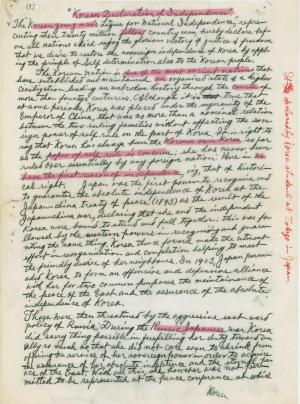 (1)
"Korean Declaration of Independence"
The Korean young men's league for National Independence, repre-
senting their twenty million fellow country men hereby declare before
all nations which enjoy the glorious victory of freedom &
that we desire to restore the sovereign independence of Korea by apply-
ing the principle of self determination also to the Korean people.
The Korean Nation is one of the most ancient nations that
have established and maintained the organized state of a higher
civilization, leading unbroken history through the course of
more than forty centuries. Although it is true that
at some periods, Korea was placed under the suzerainty of the
Emperor of China, that was no more than a nominal relation
between the two ruling families without affecting the sove-
reign power of self rule on the part of Korea. It is right to
say that Korea has always been the Koreans own Korea so far
as the power of self rule is concerned. She has never been
ruled over essentially by any foreign nation. Here is we
have the first reason of independence, viz, that of histori-
cal right. Japan was the first power to recognize and
to guarantee the absolute independence of Korea at the
Japan-china treaty of peace (1895) as the result of the
Japan-china war, declaring that she and the independent
Korea were bound to stand and fall together; this was fo-
llowed by the western powers in recognizing and guaran-
teeing the same thing. Korea then
effort in reorganization and
the friendly desire of her neighbors. In 1903, Japan persuad-
aded Korea to form an offensive and defensive alliance
with her for two common purposes the maintenance of
the peace of the East and the assurance of the absolute
independence of Korea
These were then threatened by the aggressive east ward
policy of Russia. During the Russo Japanese war Korea
did every thing possible in fulfilling her duty toward an
ally so much so that she did not care even to shrink from
offering the service of her sovereign power in order to acquire
the assurance of her absolute existence and the eternal pe-
ace of the East. With all this she however was not per-
mitted to be represented at the peace conference at which
Korea
Declared by Korean students at Tokyo in Japan